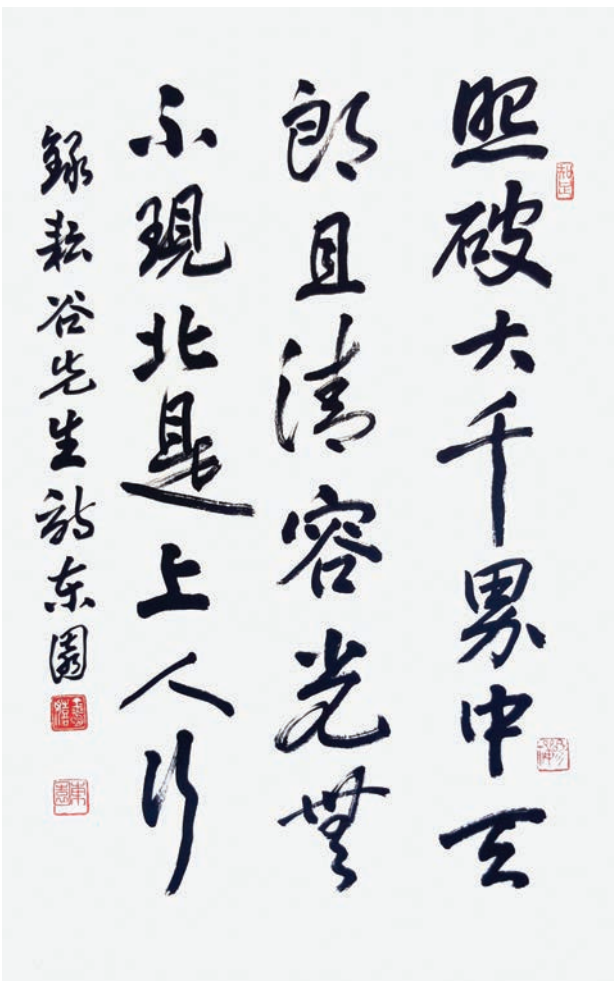 照破大千界中天
朗且清容光無
不現此是上人行
錄耘谷先生詩东園